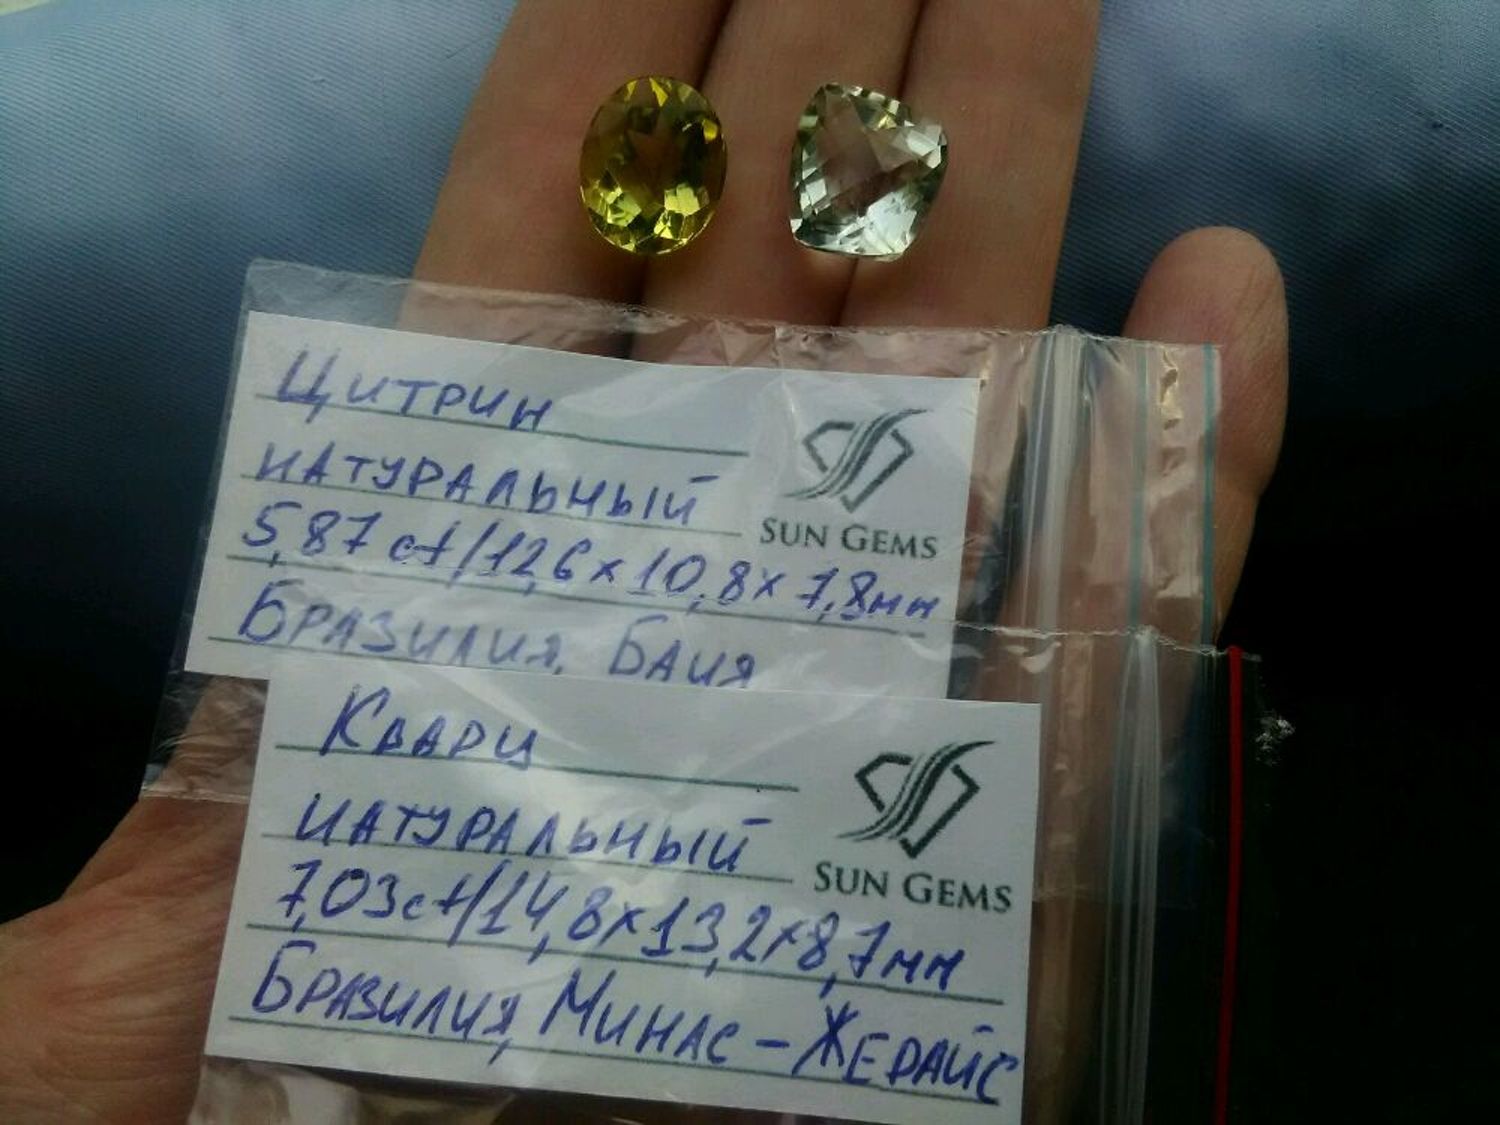 Цитрин
натуральный
5,87 ct/12,6 x 10,8 x 7,8мм
Бразилия, Баия
SUN GEMS
Кварц
натуральный
7,03ct/14,8x13,2x8,7мм
Бразилия, Минас-Жерайс
SUN GEMS